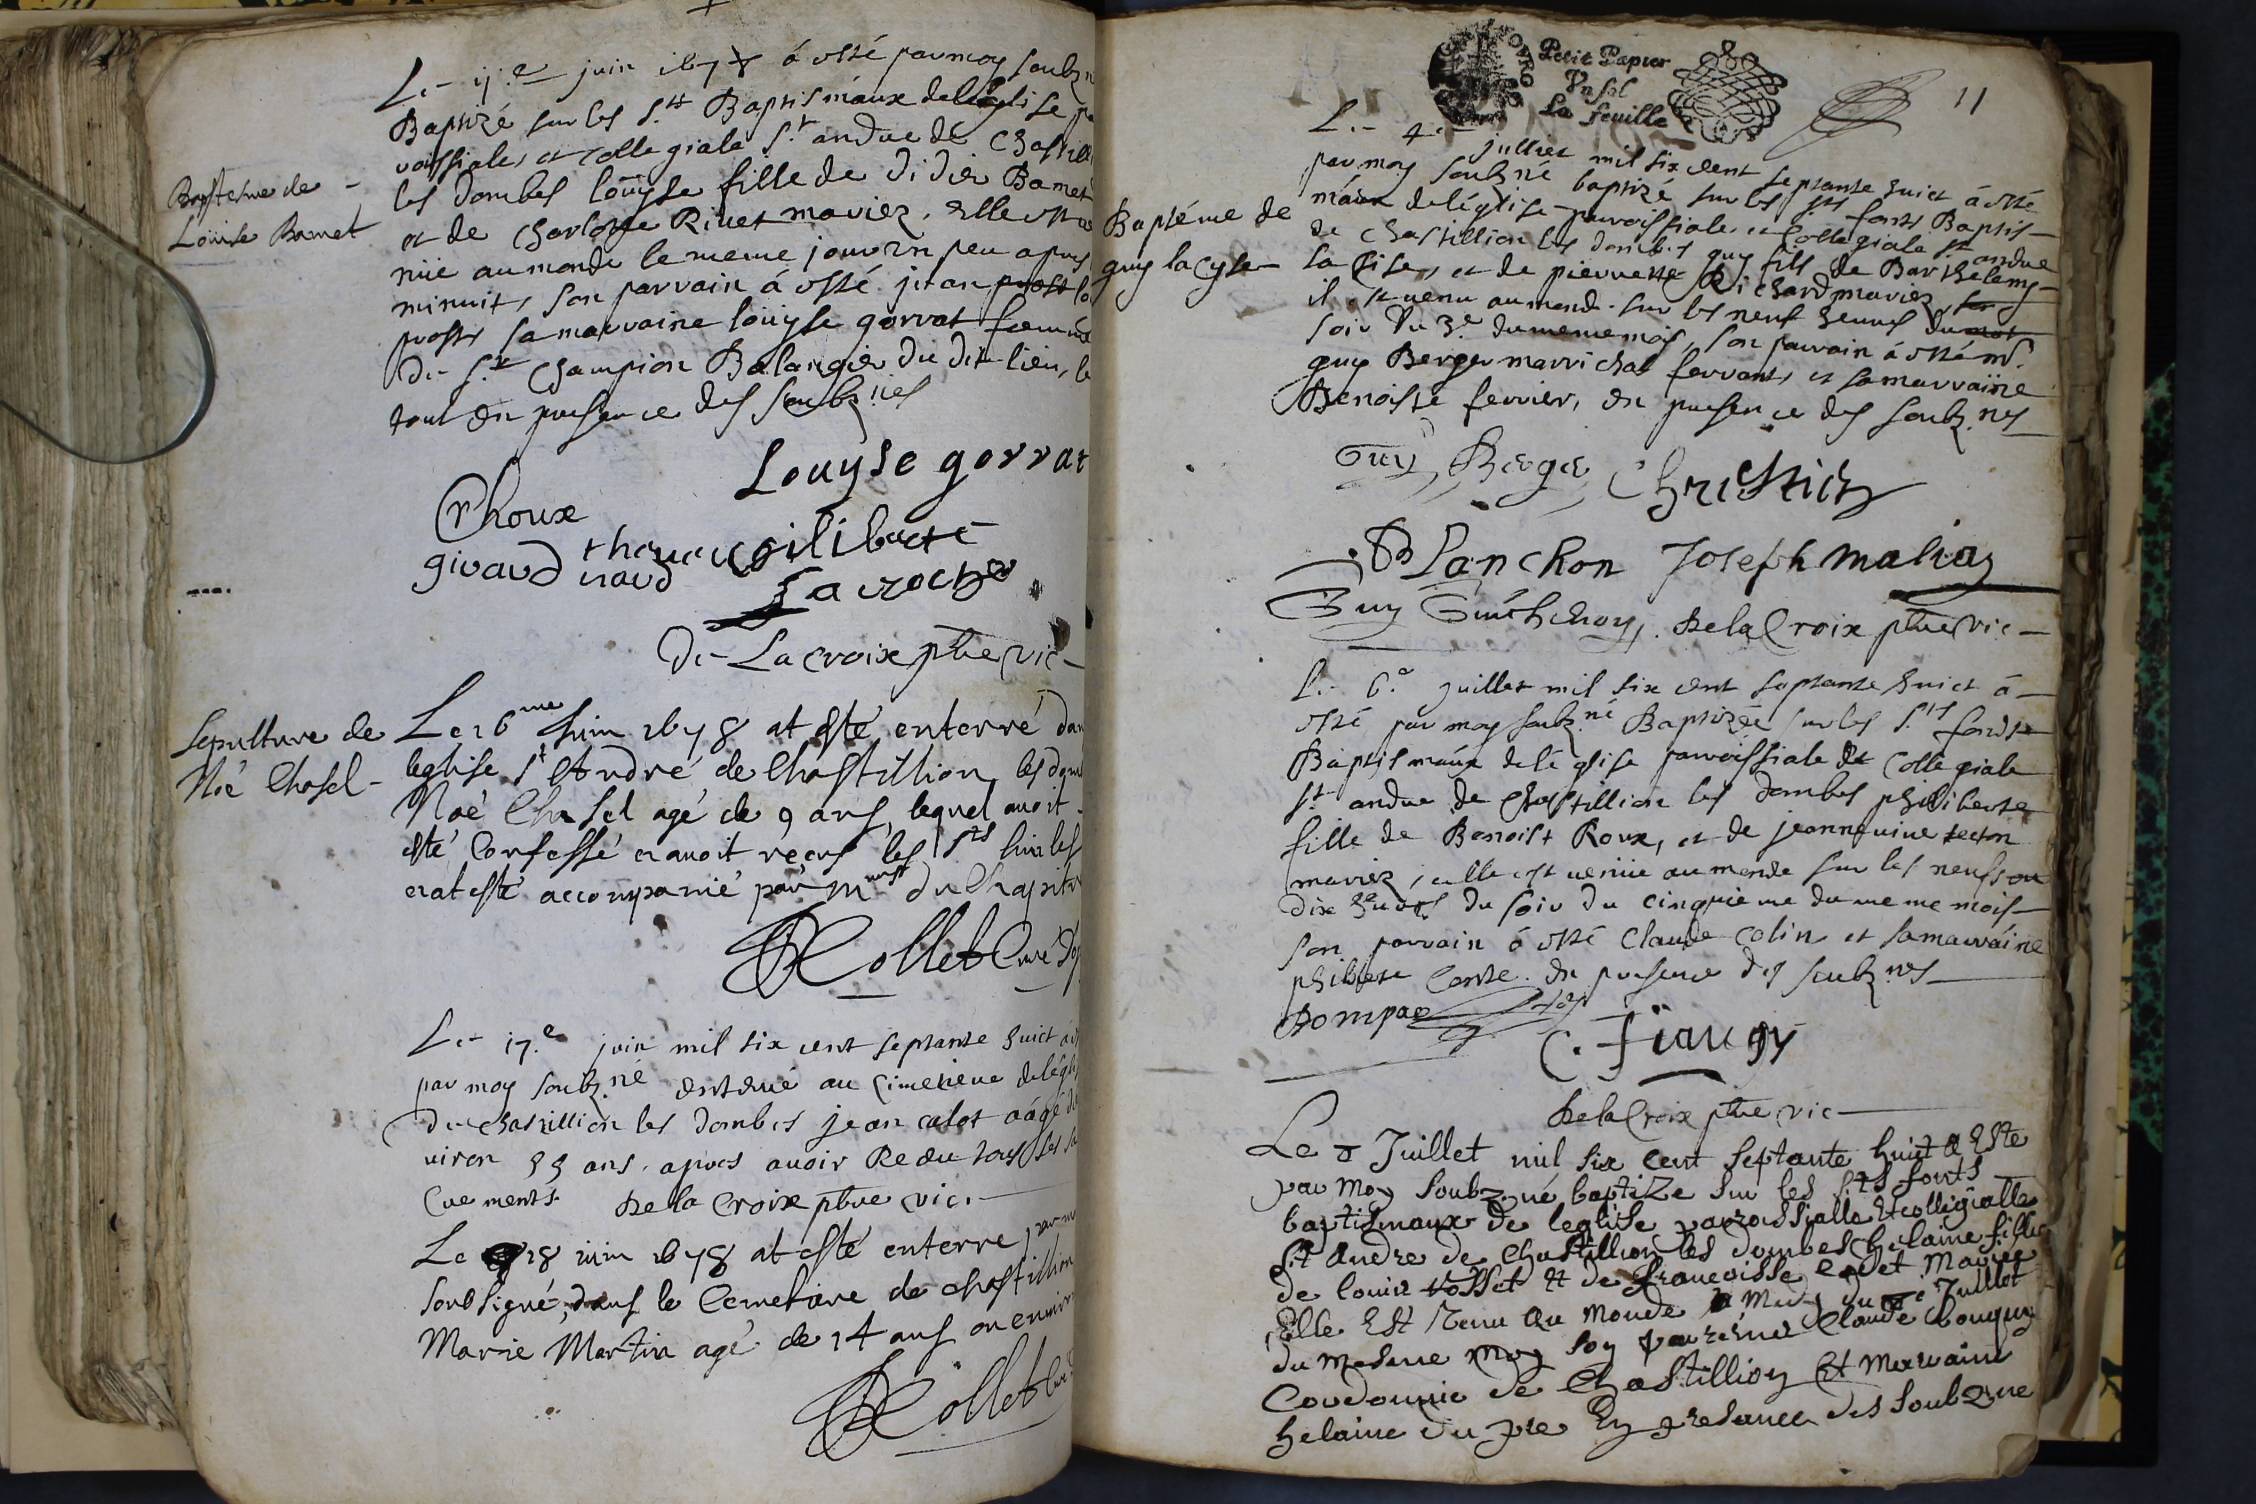 Le juin 1678 à esté par moy soubz
Baptizé sur les Sts Baptismaux de léglise
roissiale, et collegiale St andre de Chastill
les dombes louyse fille de didier Bamet
et de charlotte Rivet mariez, elle est
nüe au monde le meme jour un peu apres
minuit, son parrain à esté jean
prost, sa marraine louyse gorrat femme
de Sr Champion Bolangier du dit lieu, le
tout en presence des soubz.nes
Baptesme de
Louise Bamet
Louyse gorrat
Choux
giraud
Laroche
De Lacroix ptre vic
Sepulture de
Noé Chasel
Le 16me Juin 1678 at esté enterré dan
leglise St André de Chastillion les dom
Noé Chasel agé de 9 ans, lequel avoit
esté Confessé et avoit receus les Sts huiles
et at esté accompanié par Mrs du Chapitre
Collet Curé
Le 17.e juin mil six cent septante huict à
par moy soubz.né enterré au cimetiere de légli
de chastillion les dombes jean calot aâgé d
viron 55 ans. apres avoir Receu tous ses sa
crements. De la Croix ptre vic.
Le 18 iuin 1678 at esté enterre par m
soubsigné, dans le Cemetiere de chastillion
Marie Martin agé de 14 ans ou environ
Collet Curé
Petit Papier
Un sol
La feuille
11
Le 4e juillet mil six cent septante huict à esté
par moy soubz.né baptizé sur les Sts fonts Baptis-
maux de léglise parroissiale, et collegiale St andre
de Chastillion les dombes guy fils de Barthelemy
la Cise, et de pierrette Richard mariez,
il est venu au monde sur les neuf heures du
soir du 3.e du meme mois, son parrain à esté mr.
guy Berger marrichal ferrant, et sa marraine
Benoiste ferrier, en presence des soubz.nes
Baptéme de
guy la Cyse
Guy Berger Chrestien
Blanchon Joseph
Guy Guichenon, De la Croix ptre vic
Le 6.e juillet mil six cent septante huict à
esté par moy soubz.né Baptizée sur les S.ts fonds
Baptismaux de léglise parroissiale et collegiale
St. andre de Chastillion les dombes philiberte
fille de Benoist Roux, et de jeanne
mariez, elle est venüe au monde sur les neufs ou
dix heures du soir du cinquieme du meme mois
son parrain à esté Claude Colin et sa marraine
en presence des soubz.nes
Bompar
C. fiaugy
De la Croix ptre vic
Le 8 Juillet mil six cent septante huict a Este
par Moy soubz.né baptize sur les Sts fonts
baptismaux de leglise parroissialle et collegialle
St Andre de Chastillion les dombes helaine fille
de louis et de francoisse Mariee
Elle Est venu Au Monde Juillet
du mesme moy son parrain Claude
Cordonnie de Chastillion Et Marraine
helaine du pre En presance des soubz.ne